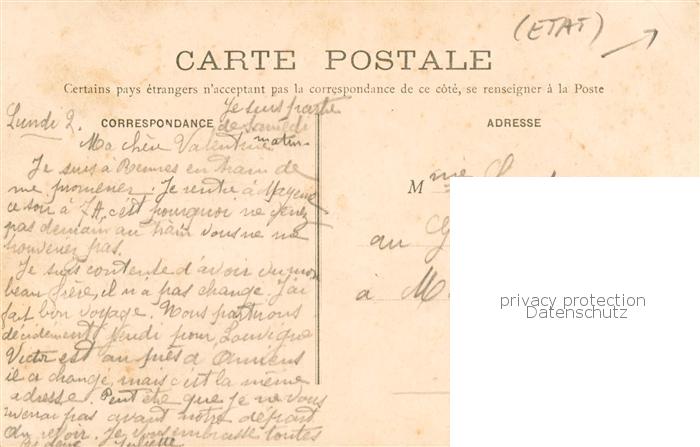 (ETAT)
CARTE POSTALE
Certains pays étrangers n'acceptant pas la correspondance de ce côté, se renseigner à la Poste
Je suis partie
Lundi 2. CORRESPONDANCE de Samedi
ADRESSE
Ma chère Valentine matin
Je suis à Rennes en train de
me promener. Je rentre à Mayenne
ce soir à 7H, c'est pourquoi ne venez
pas demain au train vous ne me
trouverez pas.
Je suis contente d'avoir vu mon
beau frère, il n'a pas changé. J'ai
fait bon voyage. Nous partirons
décidément Vendi pour Louvigné
Victor est au près d'Amiens
il a changé, mais c'est la même
adresse. Peut être que je ne vous
reverrai pas avant notre départ
Au revoir. Je vous embrasse toutes
Juliette
Mme
au
à M
privacy protection
Datenschutz